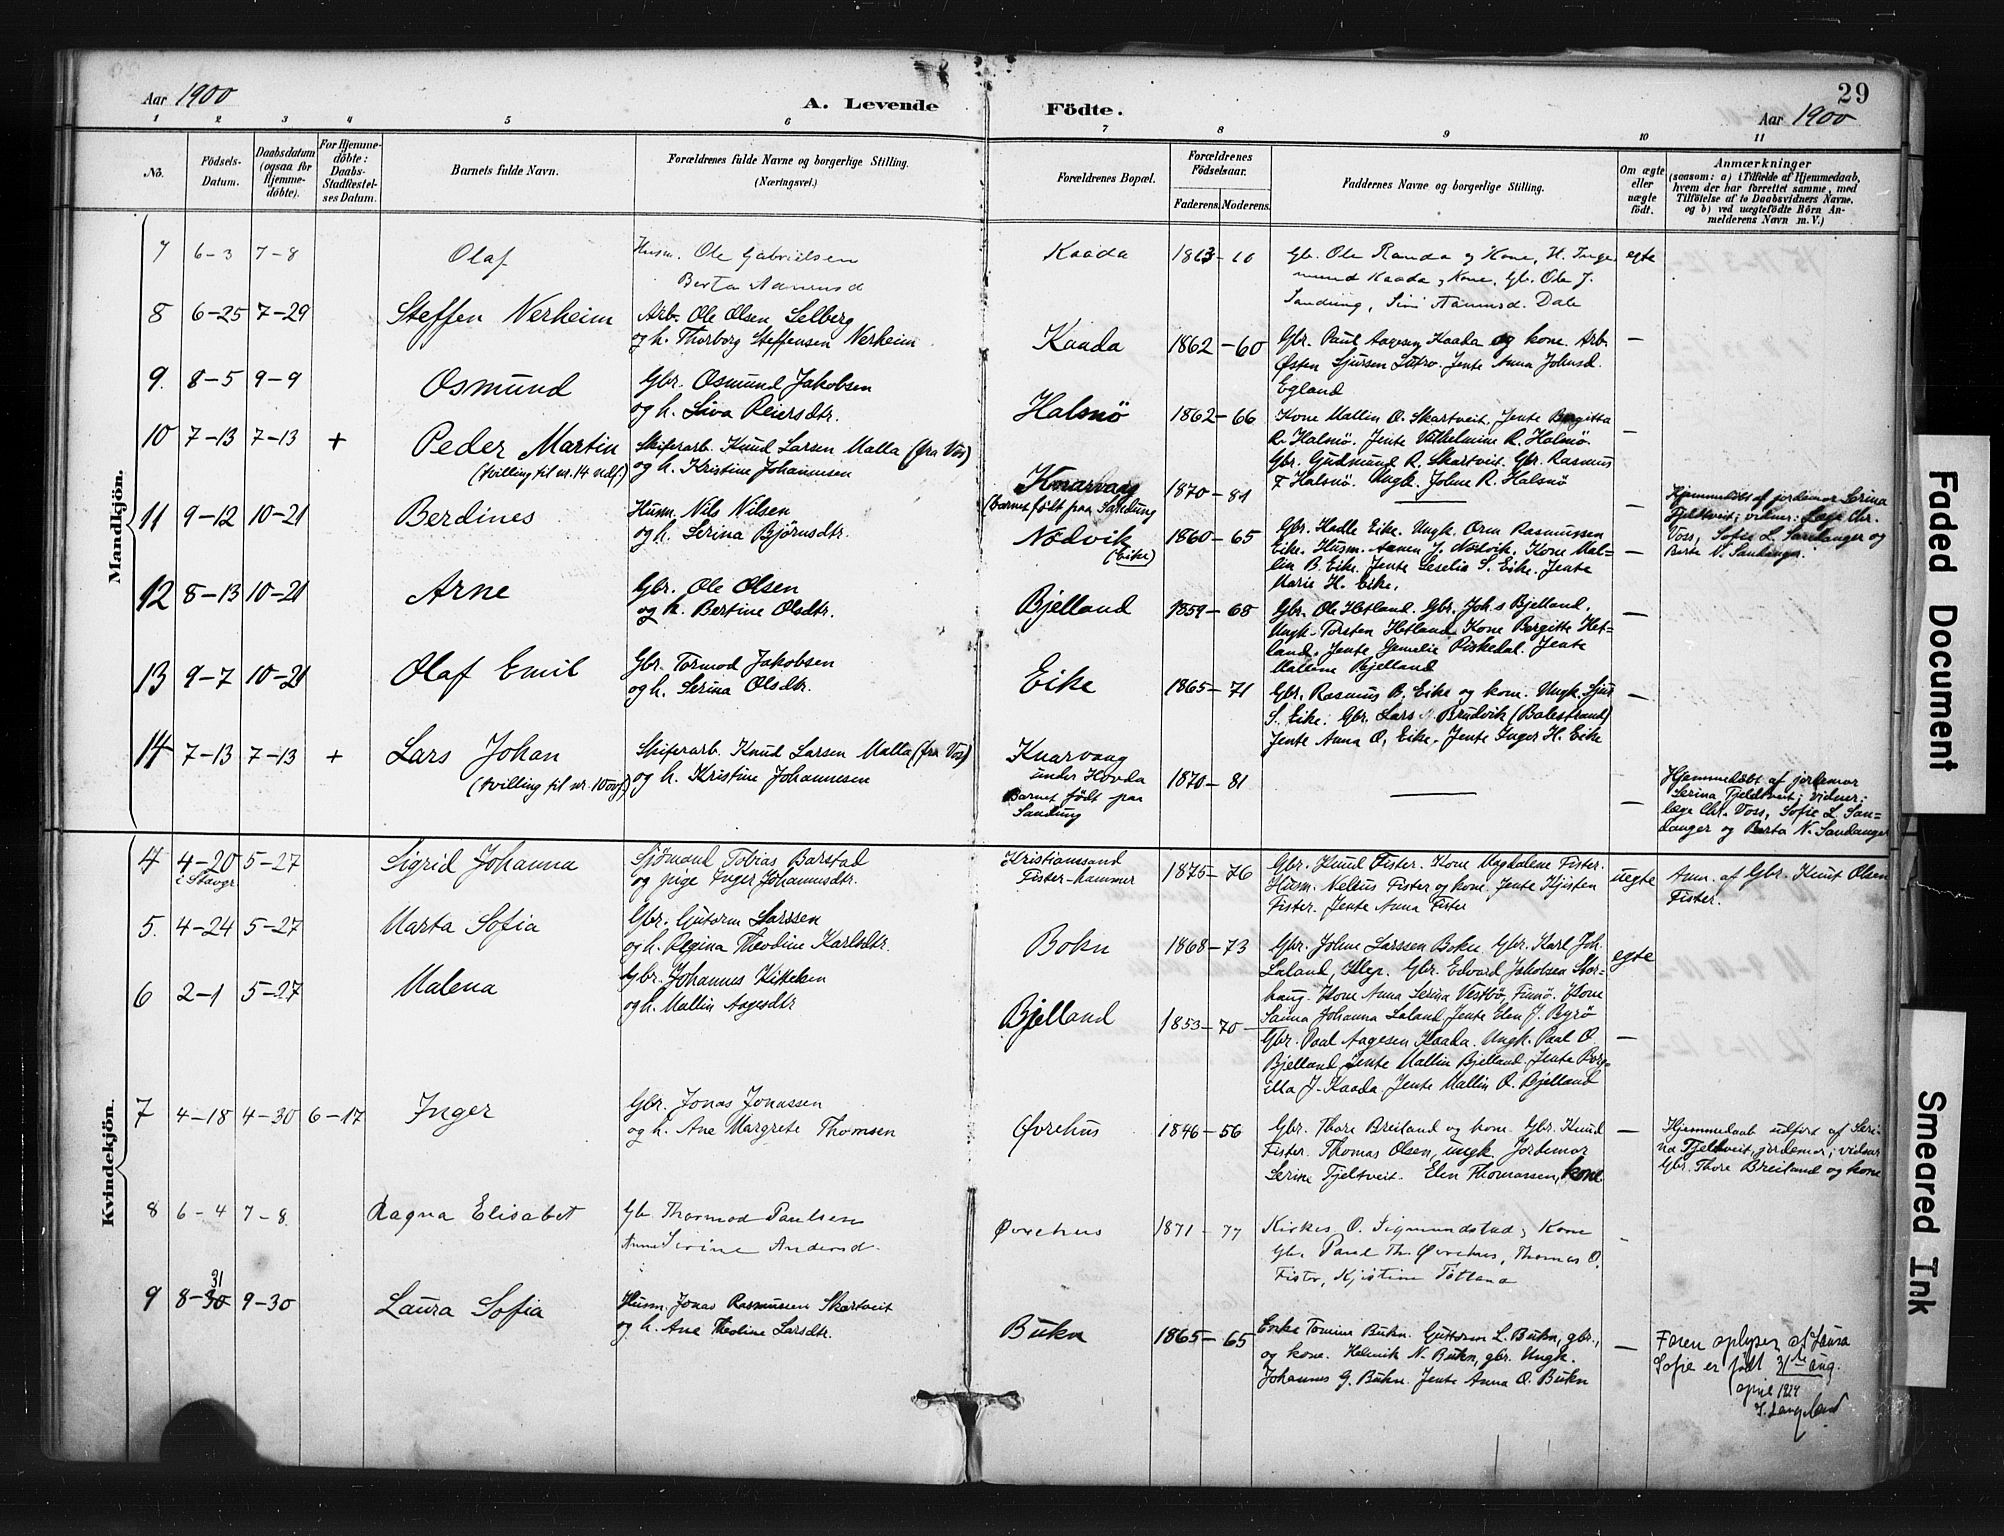 29
Aar 1900
A. Levende Födte.
Aar 1900
1 2 3 4 5 6 7 8 9 10 11
No.
Födsels-Datum.
Daabsdatum (ogsaa for Hjemmedöbte).
For Hjemmedöbte: Daabs-Stadfæstelses Datum.
Barnets fulde Navn.
Forældrenes fulde Navne og borgerlige Stilling. (Næringsvei.)
Forældrenes Bopæl.
Forældrenes Födselsaar.
Faderens. Moderens.
Faddernes Navne og borgerlige Stilling.
Om ægte eller uægte födt.
Anmærkninger
(saasom: a) i Tilfælde af Hjemmedaab, hvem der har forrettet samme, med Tilföielse af to Daabsvidners Navne, og b) ved uægtefödte Börn Anmelderens Navn m. V.)
Mandkjön.
7 6-3 7-8 Olaf
Husm. Ole Gabrielsen
Berta
Kaada 1863-60
Gb. Ole Randa og Kone, H. Inge-
mund Kaada, Kone, Gb. Ole J.
Sandung, Dale
egte
8 6-25 7-29 Steffen Nerheim
Arb. Ole Olsen Selberg
og h. Thorborg Steffensen Nerheim
Kaada 1862-60
Gbr. Paul Aagesen Kaada og kone. Arb.
Østen Sjursen Jente Anna Johnsd.
Egland
—
9. 8-5 9-9 Osmund
Gbr. Osmund Jakobsen
og h. Siva Reiersdtr.
Halsnö 1862-66
Kone Mallin O. Skartveit. Jente Birgitta
R. Halsnö. Jente Vilhelmine R. Halsnö
Gbr. Gudmund R. Skartveit. Gbr. Rasmus
F. Halsnö. Ungk. Johne R. Halsnö
—
10 7-13 7-13 + Peder Martin
(tvilling til nr. 14 ndf.)
Skiferarb. Knud Larsen Malla (fra Vos)
og h. Kristine Johannesen
Knarvaag
(barnet født paa Sandung
1870-81
—
Hjemmedøbt af jordemor Serina
Tjeltveit; vidner: Læge Chr.
Voss, Sofie L. Sandanger og
Berta N. Sandanger.
11 9-12 10-21 Berdines
Husm. Nils Nilsen
og h. Serina Bjørnsdtr.
Nødvik
(Eike)
1860-65
Gbr. Hadle Eike. Ungk. Orm Rasmussen
Eike. Husm. Aanen J. Nødvik. Kone Mal-
lin B. Eike. Jente Seselia S. Eike. Jente
Marie H. Eike.
—
12 8-13 10-21 Arne
Gbr. Ole Olsen
og h. Bertine Olsdtr.
Bjelland 1859-68
Gbr. Ole Hetland. Gbr. Joh.s Bjelland.
Ungk. Torsten Hetland. Kone Bergitte Het-
land. Jente Gemelie Riskedal. Jente
Mallene Bjelland
—
13 9-7 10-21 Olaf Emil
Gbr. Tormod Jakobsen
og h. Serina Olsdtr.
Eike 1865-71
Gbr. Rasmus B. Eike og kone. Ungk. Sjur
S. Eike. Gbr. Lars Brudvik (Balestrand)
Jente Anna O. Eike. Jente Inger H. Eike
—
14 7-13 7-13 + Lars Johan
(tvilling til nr. 10 ovf.)
Skiferarb. Knud Larsen Malla (fra Vos)
og h. Kristine Johannesen
Knarvaag
under Hovda
Barnet født paa
Sandung
1870-81
—
Hjemmedøbt af jordemor
Serina Tjeltveit; vidner:
læge Chr. Voss, Sofie L. San-
danger og Berta N. Sandanger
Kvindekjön.
4 4-20 5-27 Sigrid Johanna
i Stavgr.
Sjømand Tobias Barstad
og pige Inger Johannisdtr.
Kristianssand
Fister-hammer
1875-76
Gbr. Knud Fister. Kone Magdalene Fister.
Husm. Nelius Fister og kone. Jente Kjisten
Fister. Jente Anna Fister
uegte
Anm. af Gbr. Knut Olsen
Fister.
5. 4-24 5-27 Marta Sofia
Gbr. Gutorm Larssen
og h. Regina Theodine Karlsdtr.
Bokn 1868-73
Gbr. Johne Larssen Bokn. Gbr. Karl Joh.
Laland, Gbr. Edvard Jakobsen Stor-
haug. Kone Anna Serina Vestbö, Finnö. Kone
Sanna Johanna Laland. Jente Elen J. Byrö
egte
6 2-1 5-27 Malena
Gbr. Johannes Kittelsen
og h. Mallin Aagesdtr
Bjelland 1853-70
Gbr. Paal Aagesen Kaada. Ungk. Paal O.
Bjelland. Jente Mallin Bjelland. Jente Bor-
gilla J. Kaada. Jente Mallin O. Bjelland
—
7 4-18 4-30 6-17 Inger
Gbr. Jonas Jonassen
og h. Ane Margrete Thomsen
Øvrehus 1846-56
Gbr. Thore Breiland og kone. Gbr. Knud
Fister. Thomas Olsen, ungk. Jordemor
Serine Tjeltveit. Elen Thomassen, kone
—
Hjemmedaab udført af Seri-
na Tjeltveit, jordemor; vidner
Gbr. Thore Breiland og kone
8 6-4 7-8 Ragna Elisabet
Gb. Thormod Paulsen
Anne Serine Andersd.
Øvrehus 1871-77
Kirkes. O. Sigmundstad, Kone
Gbr. Paul Th. Øvrehus, Thomas O.
Fister, Kjistine Totland
-
9 8-30 31 9-30 Laura Sofia
Husm. Jonas Rasmussen Skartveit
og h. Ane Theoline Larsdtr.
Bukn 1865-65
Enke Tomine Bukn. Guttorm L. Bukn, gbr.,
og kone. Helmik N. Bukn, gbr. Ungk.
Johannes G. Bukn. Jente Anna O. Bukn
—
Faren oplyser at Laura
Sofie er født 31te aug.
april 1924
Faded Document
Smeared Ink